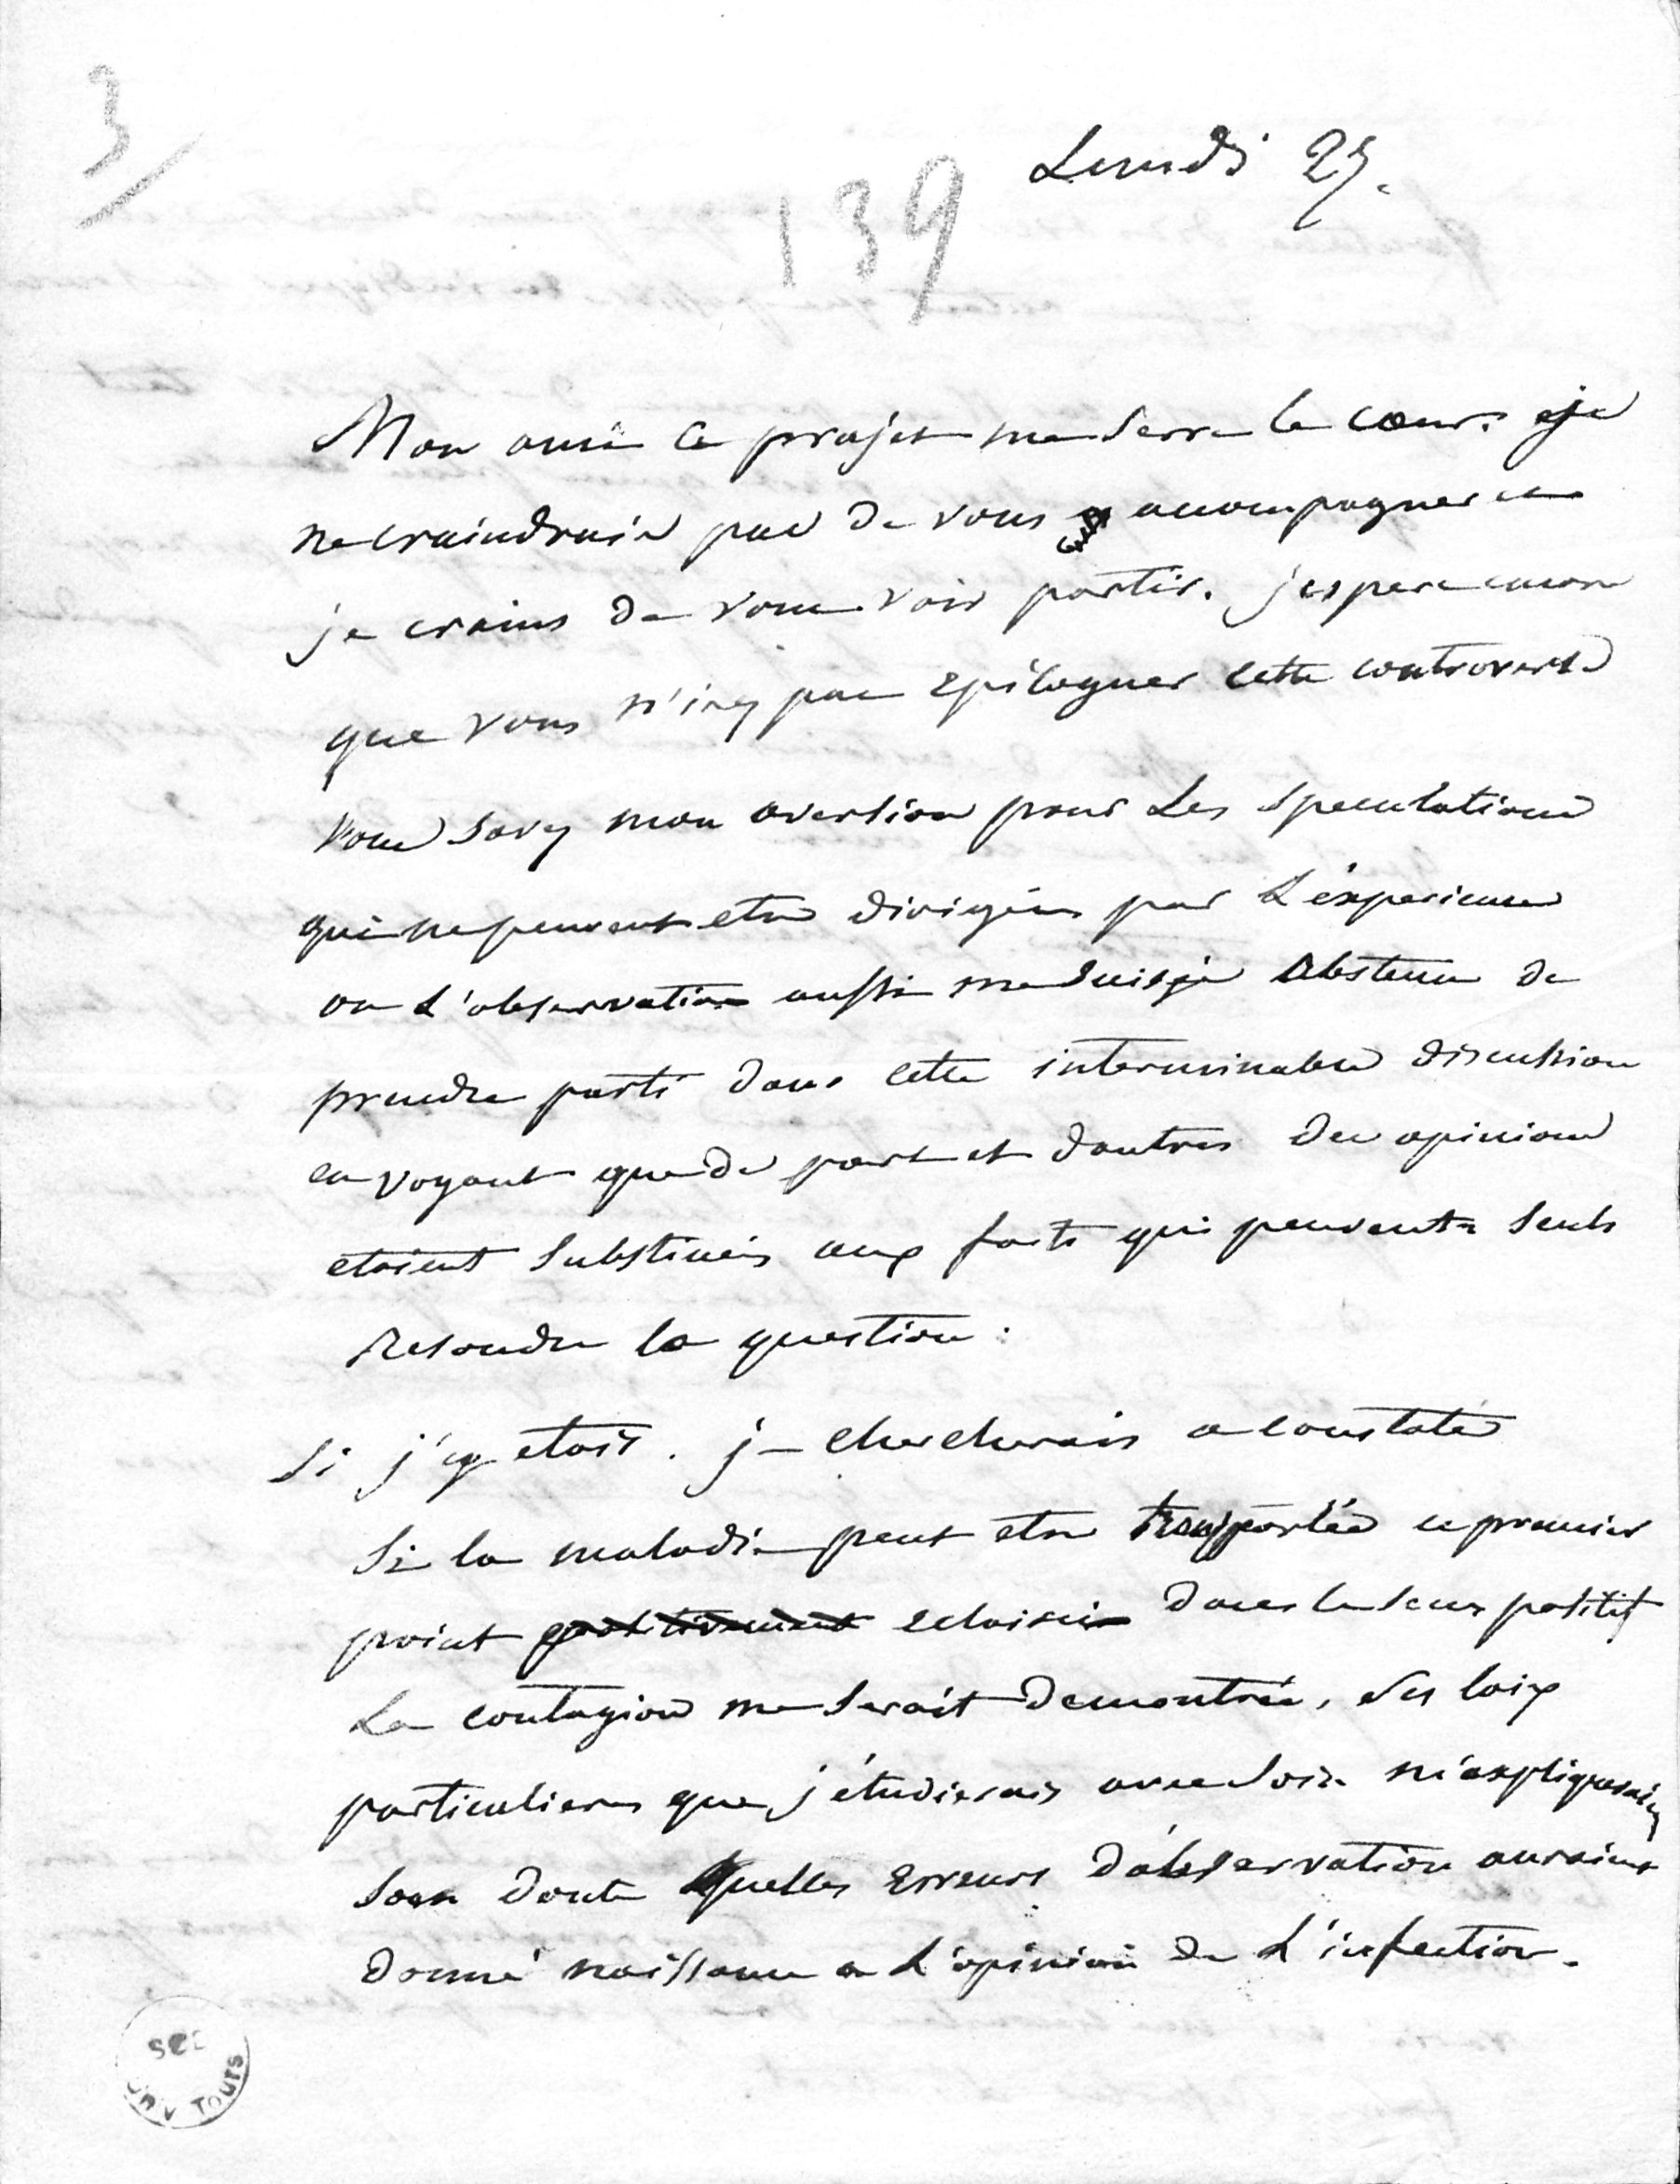 3
139
Lundi 27.
Mon ami ce projet me serre le coeur. je
ne craindrais pas de vous accompagner et
je crains de vous voir partir. j'espere encore
que vous n'irez pas epiloguer cette controverse
vous savez mon aversion pour les speculations
qui ne peuvent etre dirigées par l'éxperience
ou l'observation aussi me suis je abstenu de
prendre parti dans cette interminable discussion
en voyant que de part et d'autres des opinions
etoient substituées aux faits qui peuvent seuls
resoudre la question.
Si j'y etois. je chercherais a constater
si la maladie peut etre transportée ce premier
point positivement eclairci dans le sens positif
la contagion me serait demontrée, ses loix
particulieres que j'étudierais avec soin m'expliqueraient
sans doute quelles erreurs d'observation auraient
donné naissance a l'opinion de l'infection.
SCD
UNIV TOURS